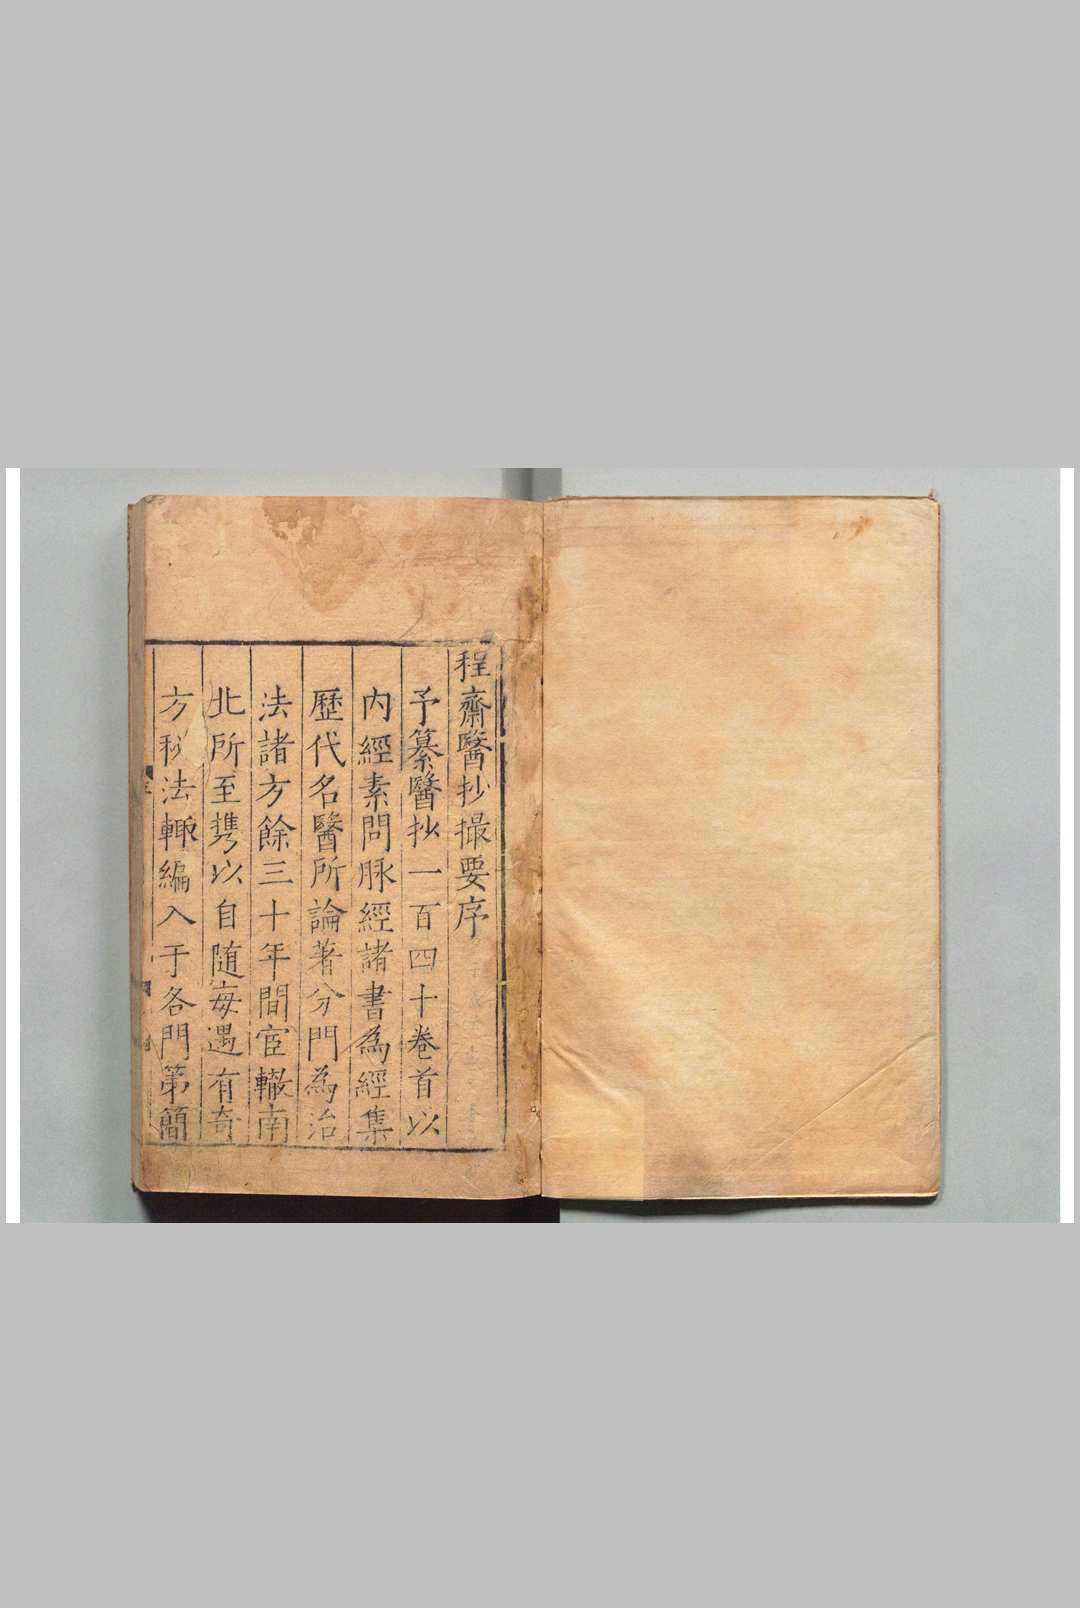 程齋醫抄撮要序
予纂醫抄一百四十卷首以
内經素問脉經諸書為經集
歷代名醫所論著分門為治
法諸方餘三十年間宦轍南
北所至携以自随每遇有奇
方秘法輙編入于各門第簡